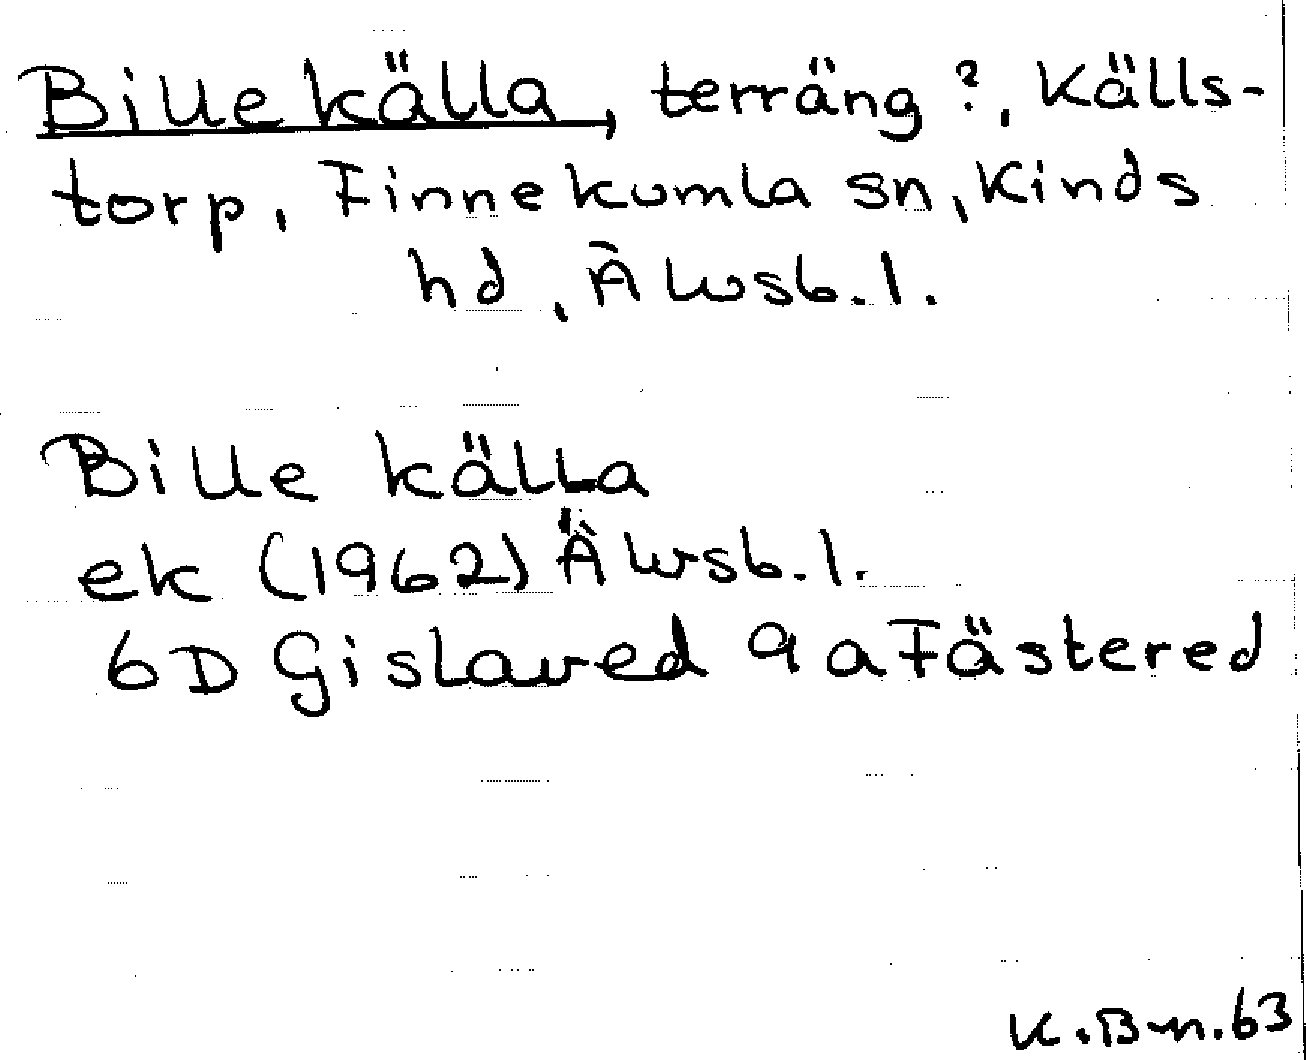 Bille källa, terräng?, Källs-
torp, Finnekumla sn, Kinds
hd, Älvsb. l.
Bille källa
ek (1962) Älvsb. l.
6D Gislaved 9a Fästered
K. Bn. 63